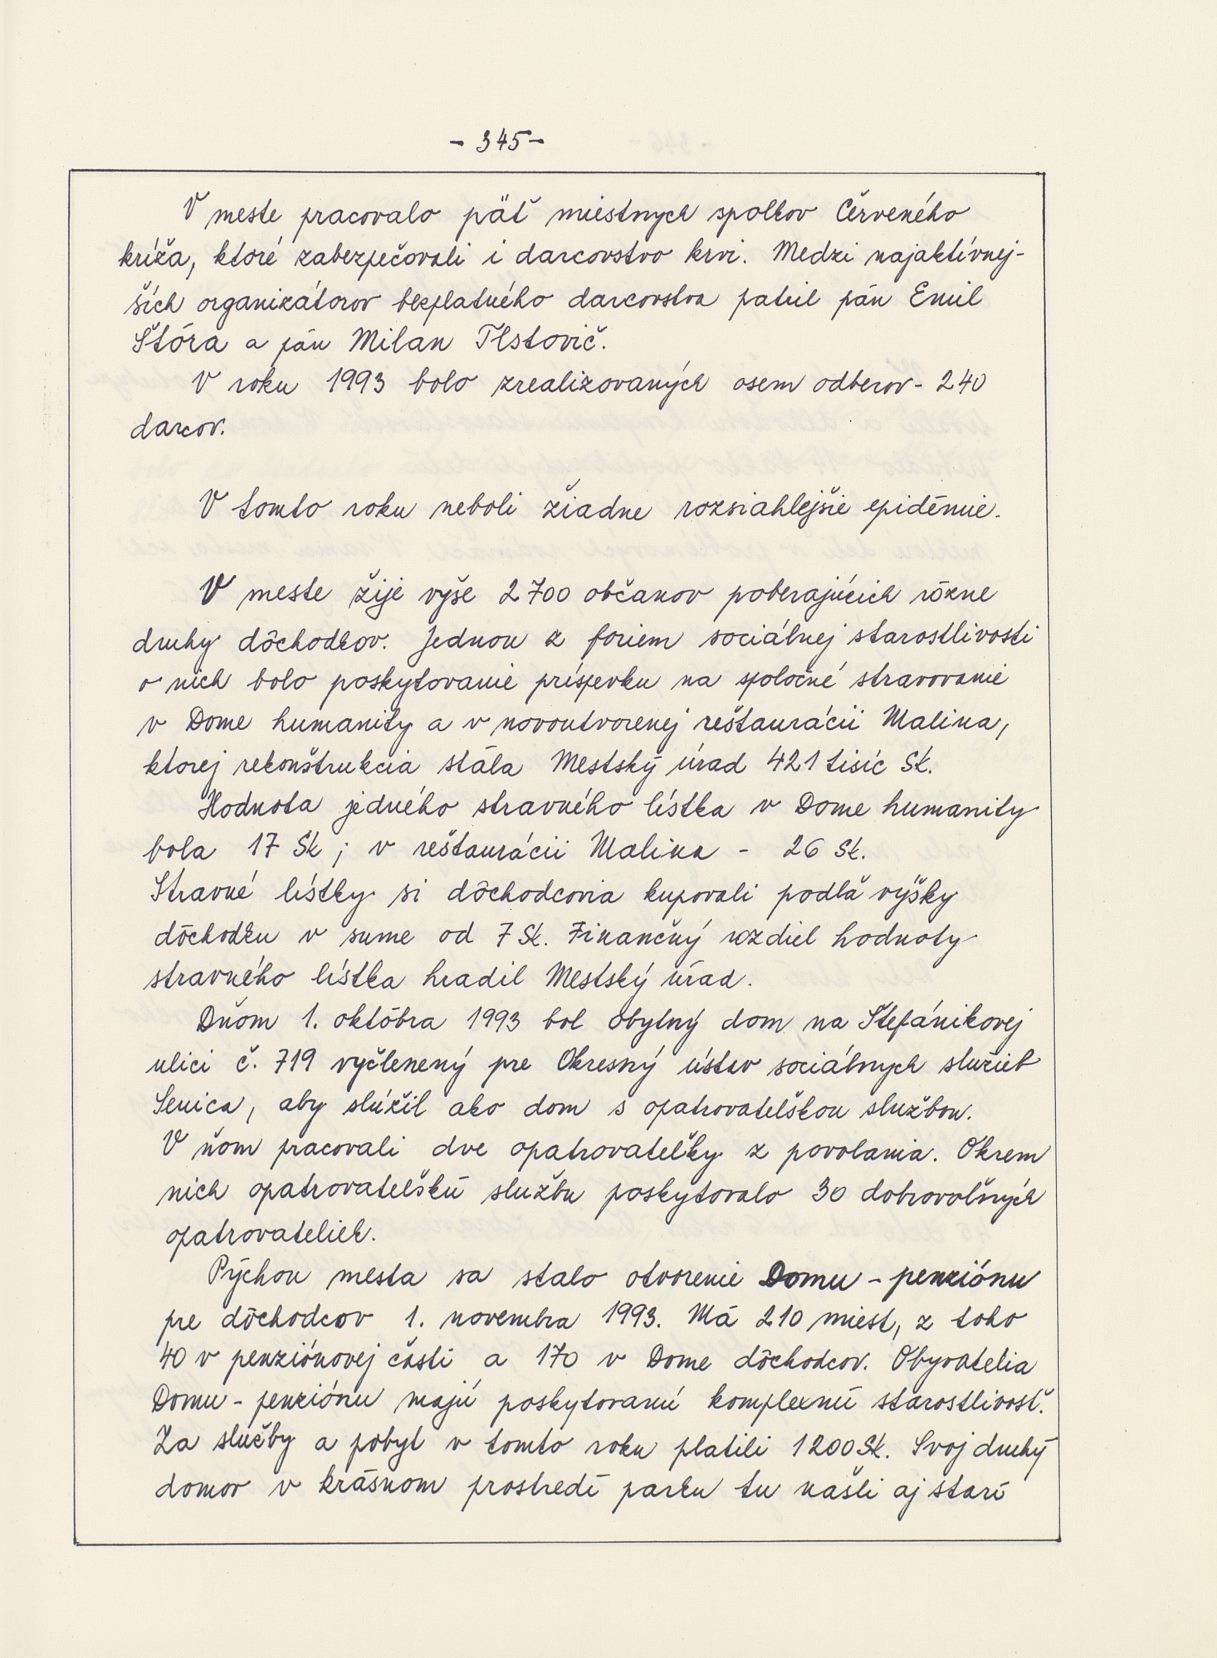 - 345 -
V meste pracovalo päť miestnych spolkov Červeného
kríža, ktoré zabezpečovali i darcovstvo krvi. Medzi najaktívnej-
ších organizátorov bezplatného darcovstva patril pán Emil
Štóra a pán Milan Tlstovič.
V roku 1993 bolo zrealizovaných osem odberov - 240
darcov.
V tomto roku neboli žiadne rozsiahlejšie epidémie.
V meste žije vyše 2 700 občanov poberajúcich rôzne
druhy dôchodkov. Jednou z foriem sociálnej starostlivosti
o nich bolo poskytovanie príspevku na spoločné stravovanie
v Dome humanity a v novoutvorenej reštaurácii Malina,
ktorej rekonštrukcia stála Mestský úrad 421 tisíc Sk.
Hodnota jedného stravného lístka v Dome humanity
bola 17 Sk ; v reštaurácii Malina - 26 Sk.
Stravné lístky si dôchodcovia kupovali podľa výšky
dôchodku v sume od 7 Sk. Finančný rozdiel hodnoty
stravného lístka hradil Mestský úrad.
Dňom 1. októbra 1993 bol obytný dom na Štefánikovej
ulici č. 719 vyčlenený pre Okresný ústav sociálnych služieb
Senica, aby slúžil ako dom s opatrovateľskou službou.
V ňom pracovali dve opatrovateľky z povolania. Okrem
nich opatrovateľskú službu poskytovalo 30 dobrovoľných
opatrovateliek.
Pýchou mesta sa stalo otvorenie Domu - penziónu
pre dôchodcov 1. novembra 1993. Má 210 miest, z toho
40 v penziónovej časti a 170 v Dome dôchodcov. Obyvatelia
Domu - penziónu majú poskytovanú komplexnú starostlivosť.
Za služby a pobyt v tomto roku platili 1 200 Sk. Svoj druhý
domov v krásnom prostredí parku tu našli aj starí